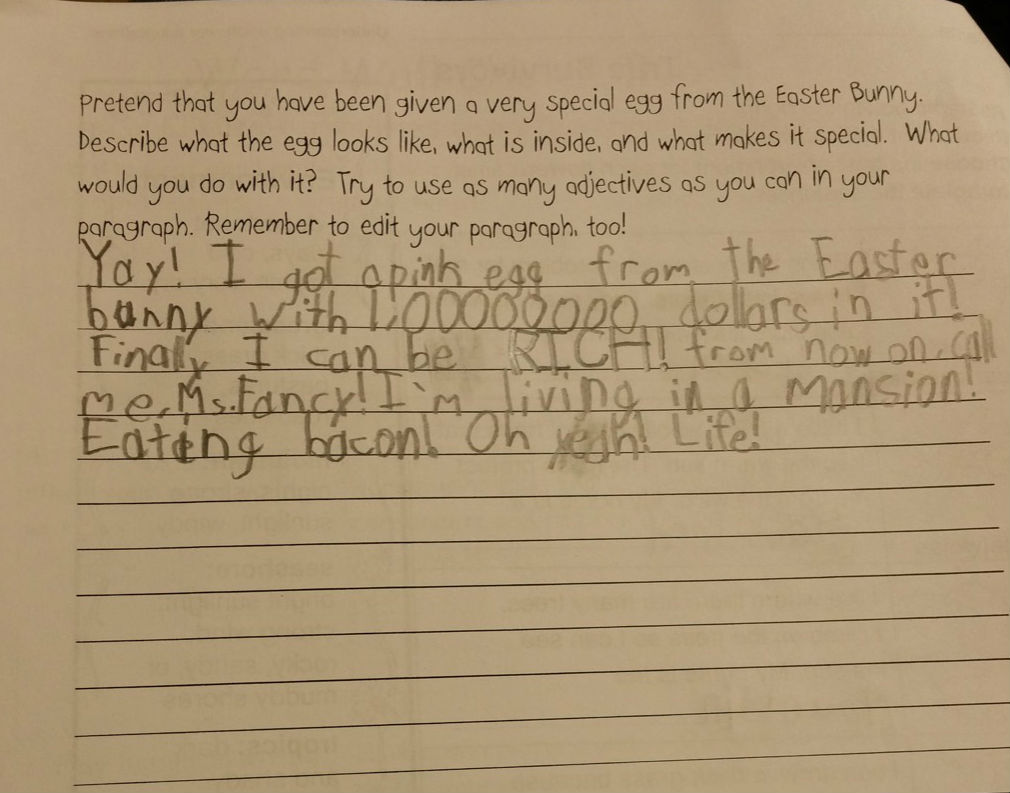 Pretend that you have been given a very special egg from the Easter Bunny.
Describe what the egg looks like, what is inside, and what makes it special. What
would you do with it? Try to use as many adjectives as you can in your
paragraph. Remember to edit your paragraph, too!
Yay! I got a pink egg from the Easter
bunny with 1,00000000 dollars in it!
Finally I can be RICH! from now on, call
me, Ms.Fancy! I'm living in a mansion!
Eating bacon! Oh yeah! Life!